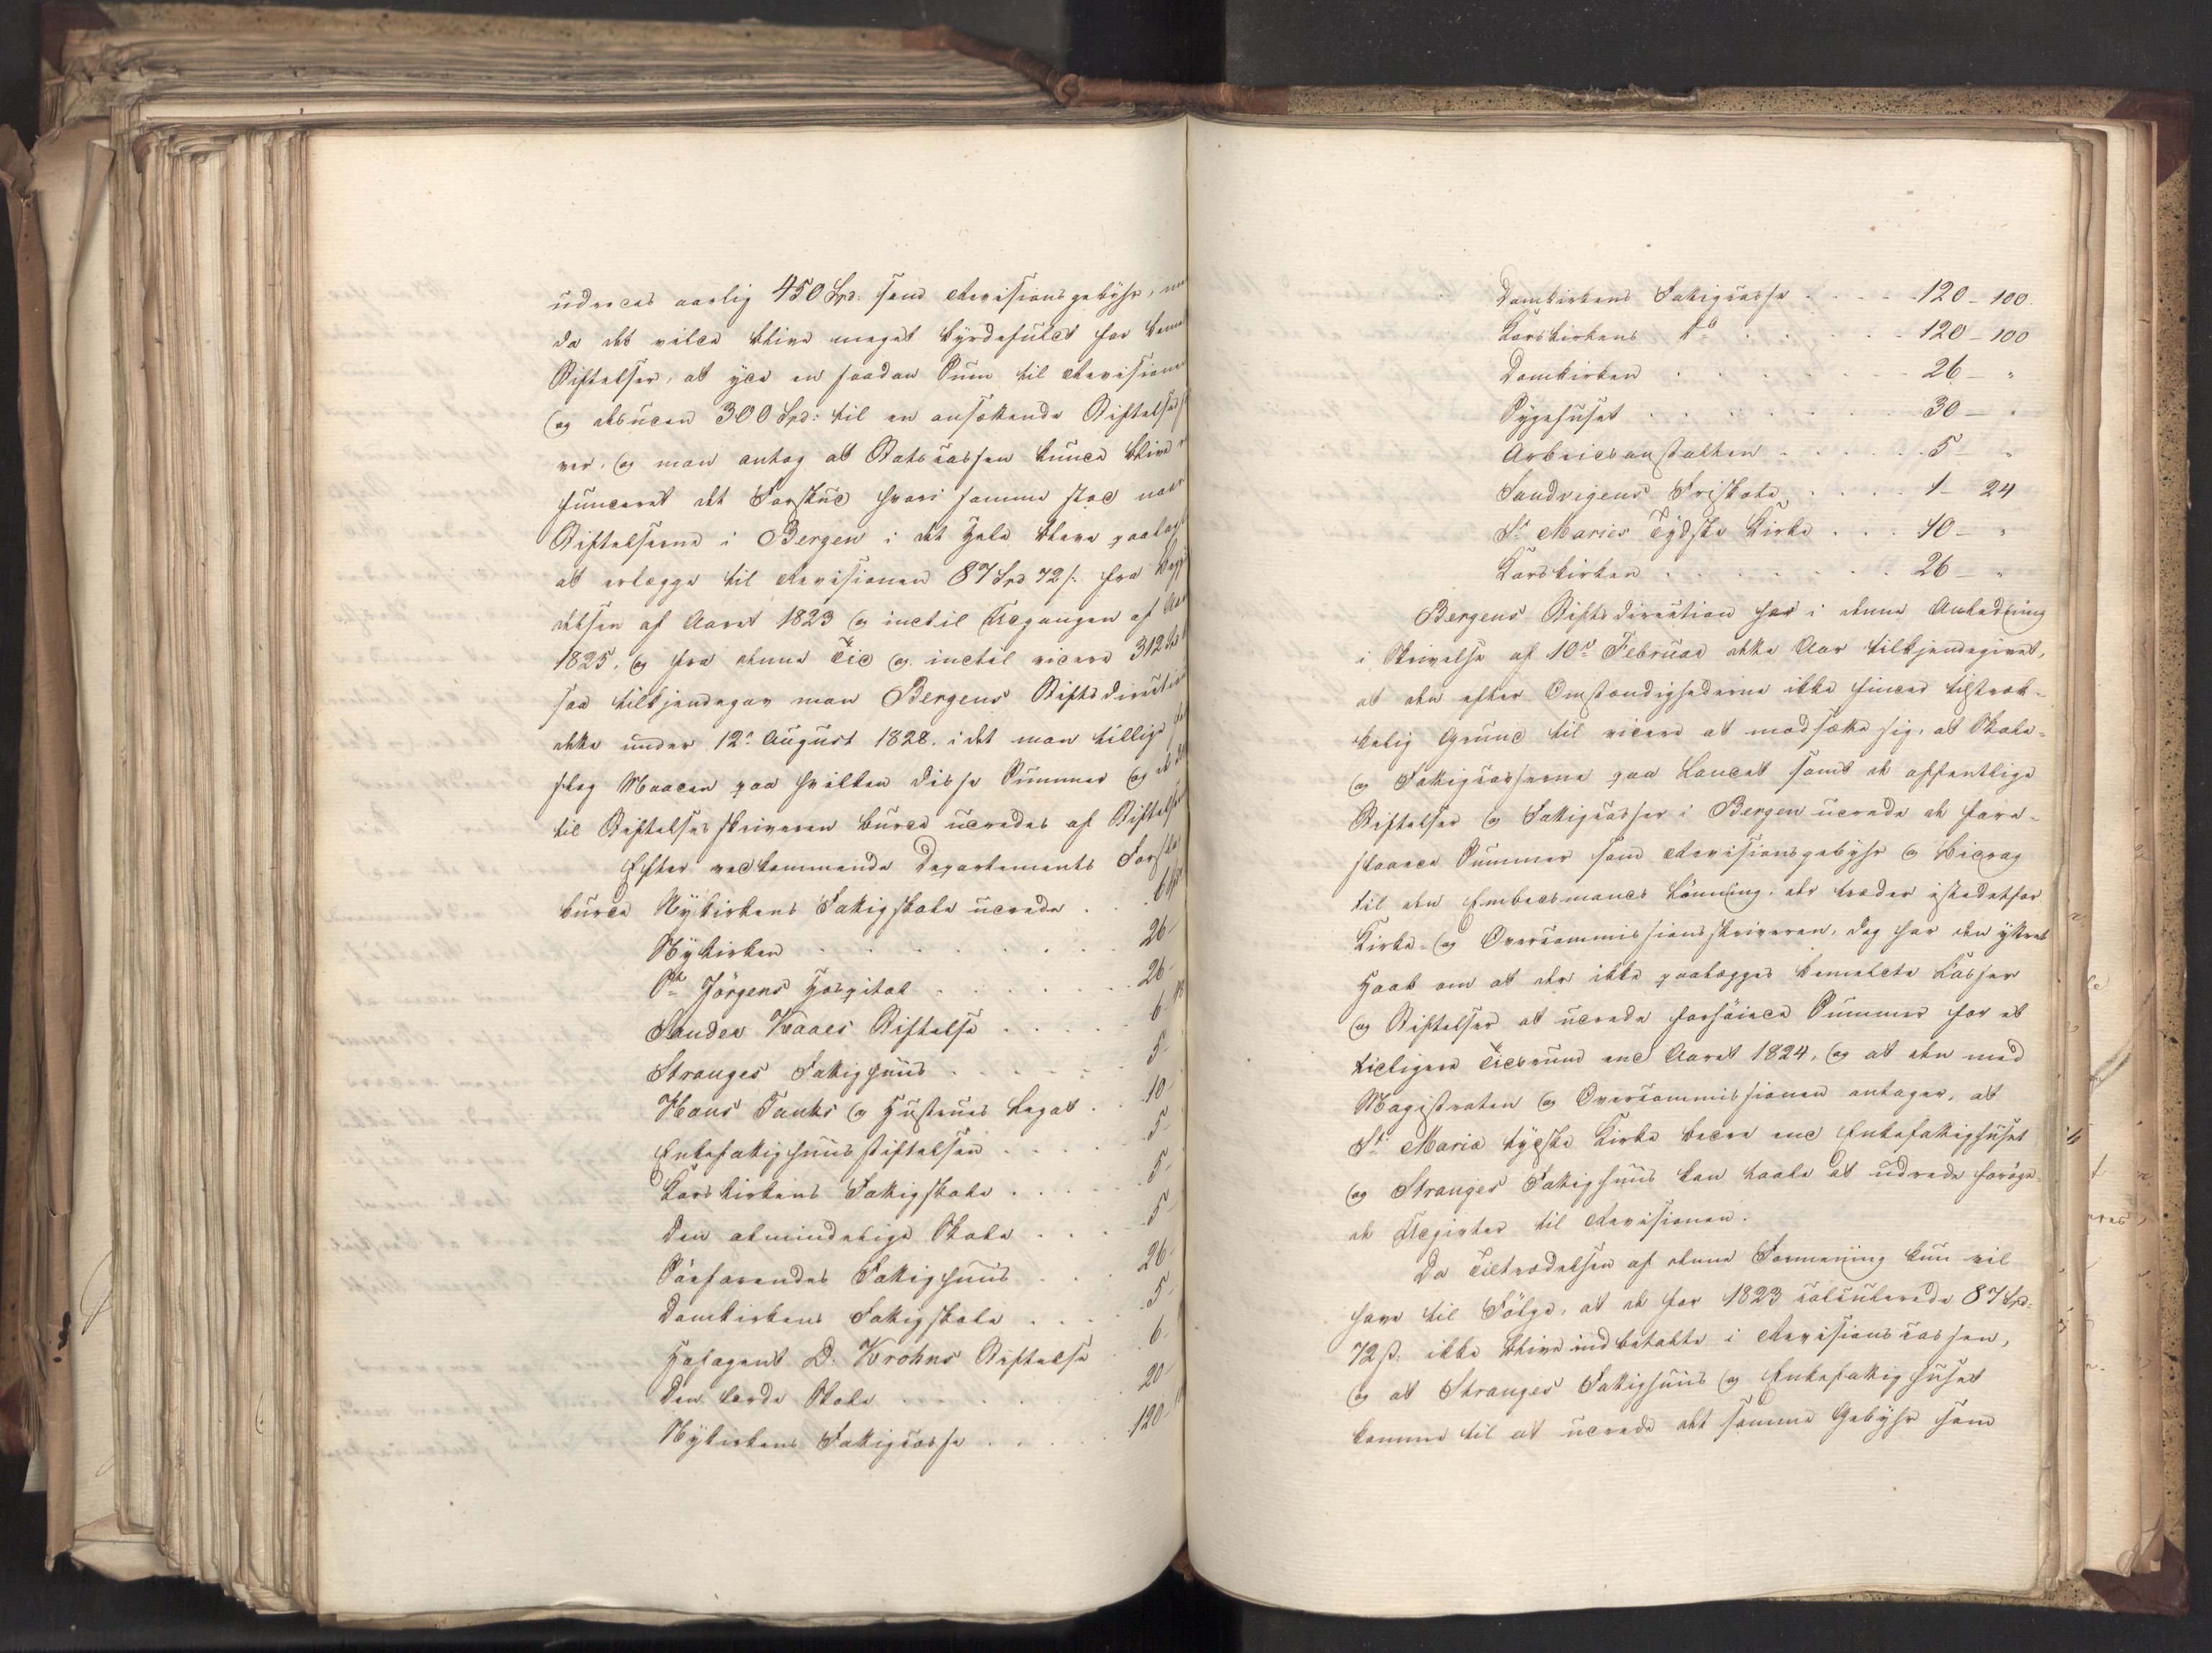 udredes aarlig 450 Spd. som Revisionsgebyhr,
da det vilde blive meget byrdefuldt for
Stiftelser, at yde en saadan Sum til Revisionen
og desuden 300 Spd: til en ansættende Stiftelses
ver, og man antog at Statscassen kunde blive
funderet det Forskud hvori samme stod naar
Stiftelserne i Bergen i det Hele bleve paalagt
at erlægge til Revisionen 87 Spd 72 s. fra
delsen af Aaret 1823 og indtil Udgangen af
1825, og fra denne Tid og indtil videre 312 Spd
saa tilkjendegav man Bergens Stiftsdirection
dette under 12te August 1828. i det man tillige
slog Maaden paa hvilken disse Summer og
til Stiftelsesskriveren burde udredes af Stiftelser
Efter vedkommende Departements
burde Nykirkens Fattigskole udrede . . 6
Nykirken . . . . . . 26-
St Jörgens Hospital . . . . . 26-
Sander Kaaes Stiftelse . . . . 6-
Stranges Fattighuus . . . . 5-
Hans Tanks og Hustrues Legat . . 10-
Enkefattighuusstiftelsen . . . . 5-
Korskirkens Fattigskole . . . . 5-
Den almindelige Skole . . . . 5-
Söefarendes Fattighuus . . . 26-
Domkirkens Fattigskole . . . . 5-
Hofagent D. Krohns Stiftelse . 6-
Den lærde Skole . . . . . 20-
Nykirkens Fattigcasse . . . . . 120-
Domkirkens Fattigcasse . . . . 120 - 100.
Korskirkens do . . . . . 120 - 100
Domkirken . . . . . . 26 - "
Sygehuset . . . . . . . 30 - "
Arbeidsanstalten . . . . . . 5 - "
Sandvigens Friskole . . . . 1 - 24
St Maries Tydske Kirke . . . 10 - "
Korskirken . . . . . . . 26 - "
Bergens Stiftsdirection har i denne Anledning
i Skrivelse af 10de Februar dette Aar tilkjendegivet,
at den efter Omstændighederne ikke finder tilstræk-
kelig Grund til videre at modsætte sig, at Skole-
og Fattigcasserne paa Landet samt de offentlige
Stiftelser og Fattigcasser i Bergen udrede de fore-
staaende Summer som Revisionsgebyhr og Bidrag
til den Embedsmands Lönning, der træder istedetfor
Kirke- og Overcommissionsskriveren, dog har den yttret
Haab om at der ikke paalægges bemeldte Casser
og Stiftelser at udrede forhöiede Summer for et
tidligere Tidsrum end Aaret 1824, og at den med
Magistraten og Overcommissionen antager, at
St Maria tydske Kirke bedre end Enkefattighuset
og Stranges Fattighuus kan taale at udrede foröge-
de Udgivter til Revisionen.
Da Tiltrædelsen af denne Formening kun vil
have til Fölge, at de for 1823 calculerede 87 Spd:
72 s. ikke blive indbetalte i Revisionscassen,
og at Stranges Fattighuus og Enkefattighuset
komme til at udrede det samme Gebyhr som